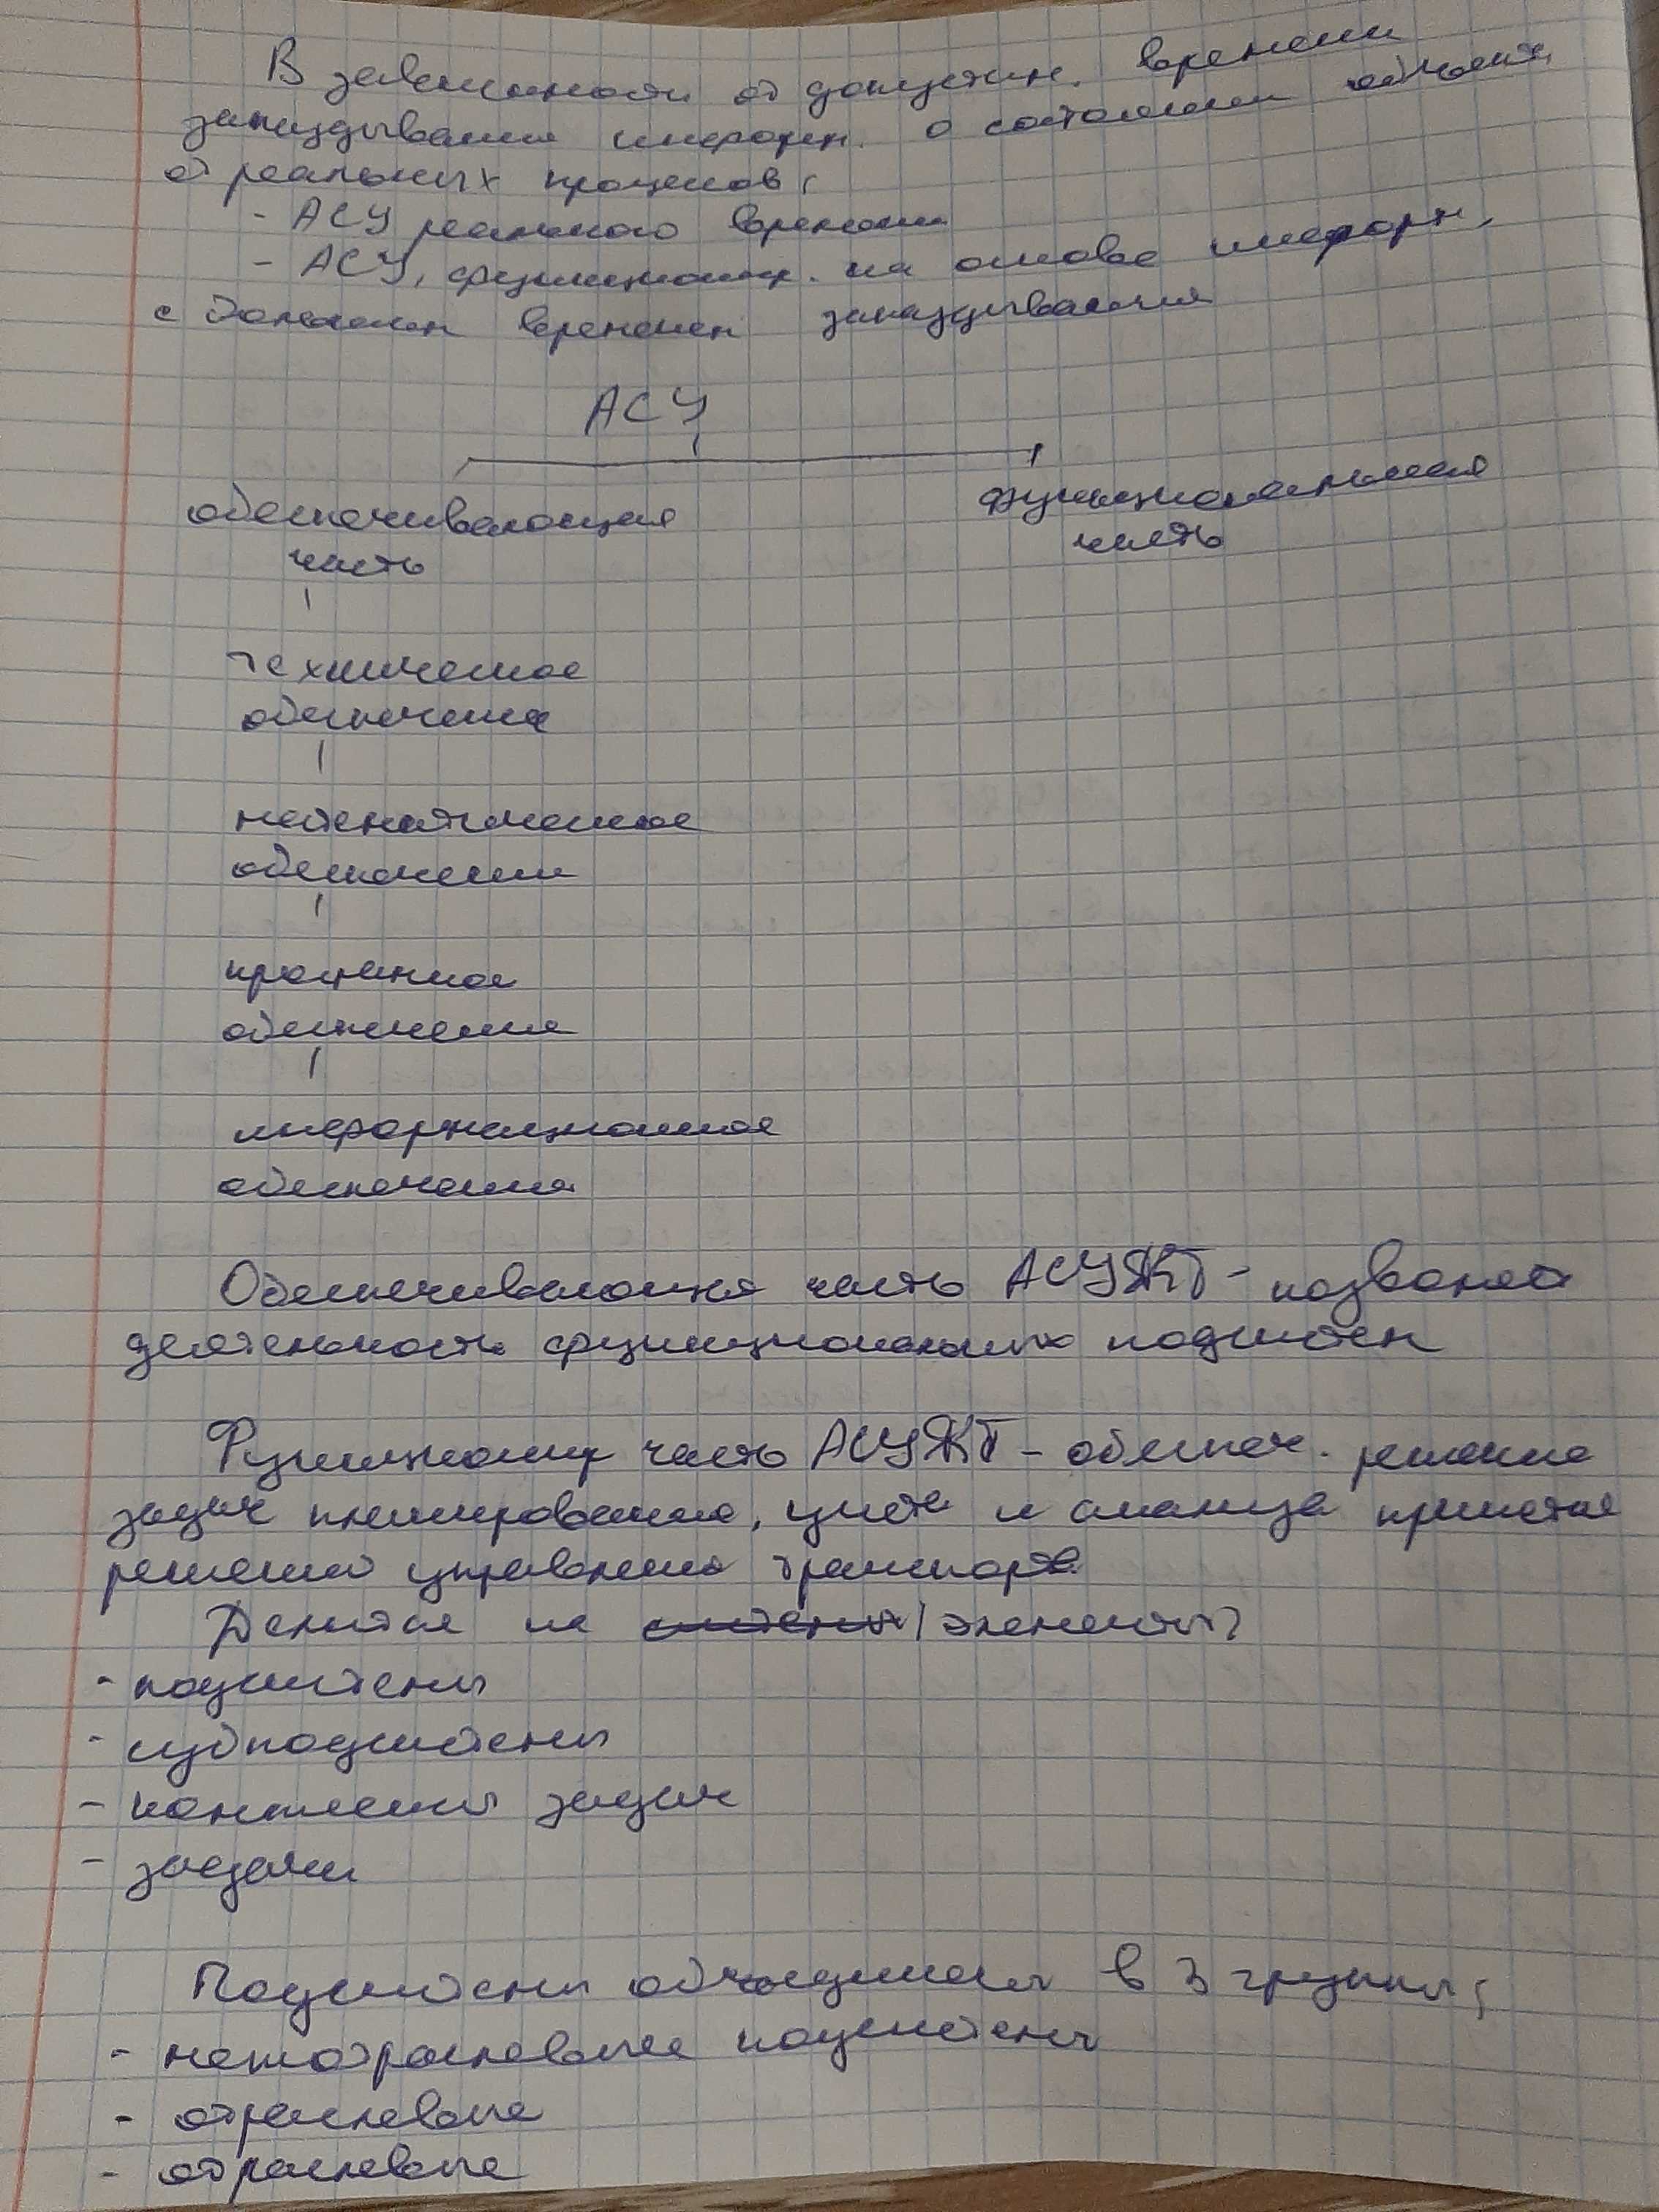 В зависимости от допустим. времени
запаздывания информ. о состоянии объекта
от реальных процессов:
- АСУ реального времени
- АСУ, функционир. на основе информ.
с большим времен запаздывания
АСУ
обеспечивающая функциональная
часть часть
техническое
обеспечение
математическое
обеспечение
програмное
обеспечение
информационное
обеспечение
Обеспечивающая часть АСУЖТ - позволяет
деятельность функциональных подсистем
Функционир часть АСУЖТ - обеспеч. решение
задач планирования, учета и анализа принятия
решений управления транспорте
Делится на системы элементы:
- подсистемы
- субподсистемы
- комплексы задач
- задачи
Подсистемы объединены в 3 группы:
- межотраслевые подсистемы
- отраслевые
- отраслевые